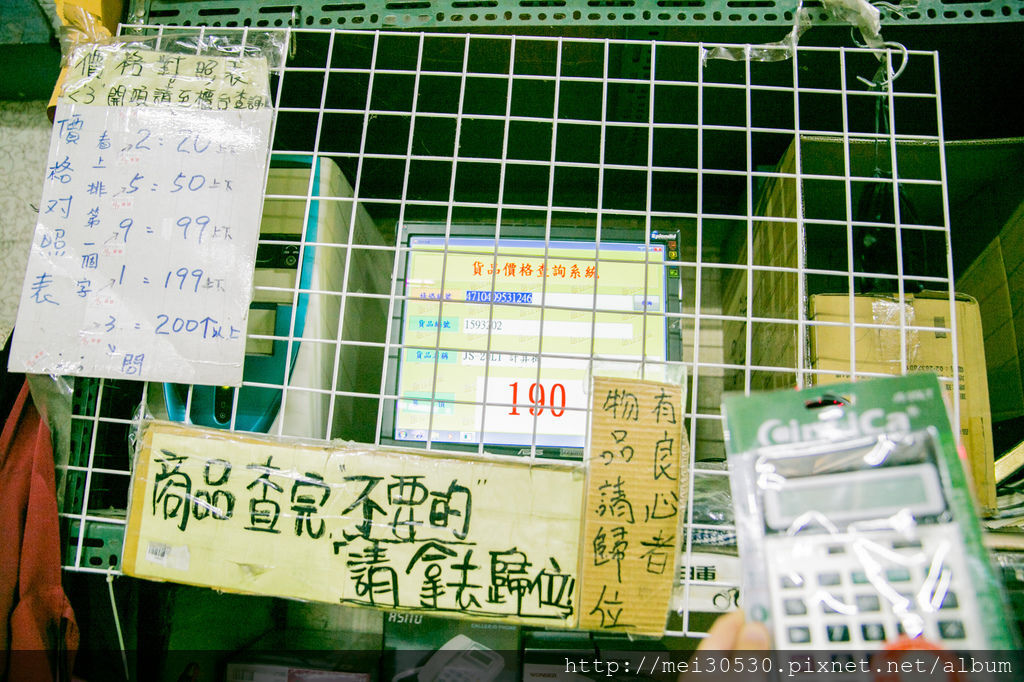 價格對照表
"3"開頭請至櫃台查詢
價格对照表
看上排第一個字
2 = 20 上下
5 = 50 上下
9 = 99 上下
1 = 199 上下
3 = 200个以上
問
貨品價格查詢系統
4710409531246
貨品編號 1593202
貨品名稱
190
ASUS
有良心者
物品請歸位
商品查完"不要的"
請拿去歸位!
http://mei30530.pixnet.net/album